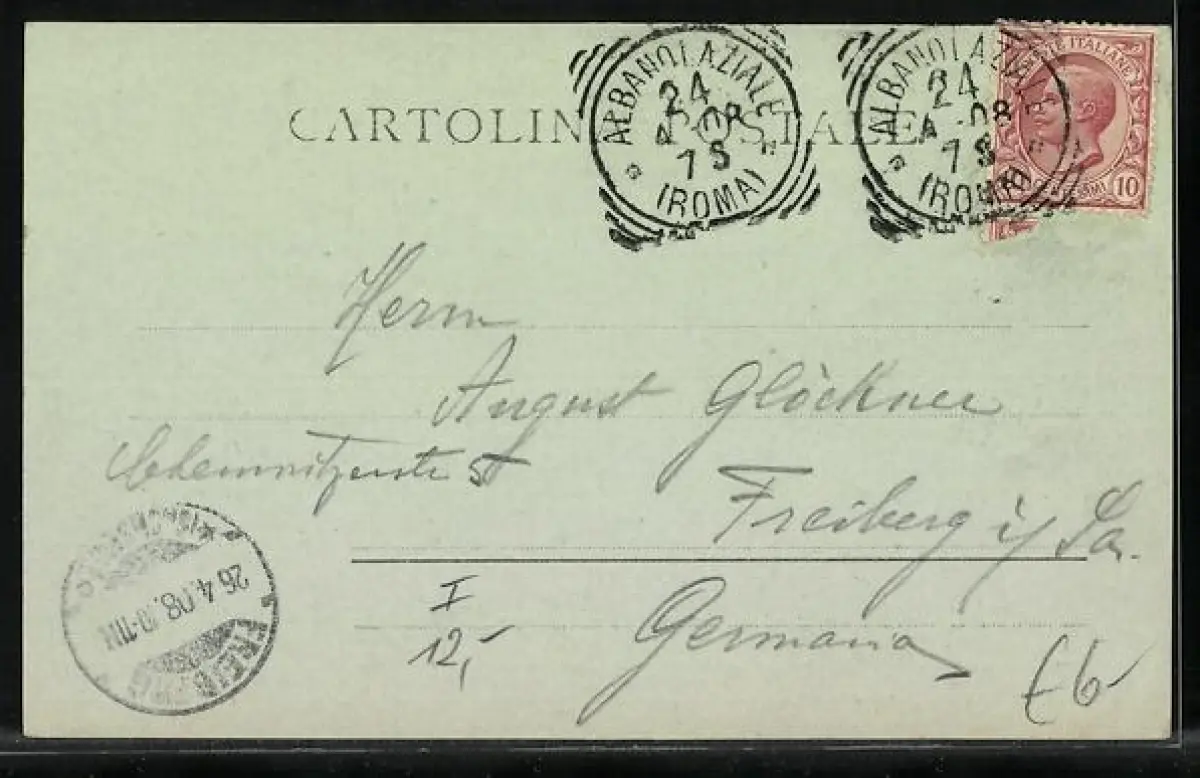 CARTOLINA POSTALE
ALBANO LAZIALE
24
4 08
7 S
(ROMA)
ALBANO LAZIALE
24
4 08
7 S
(ROMA)
POSTE ITALIANE
10
Herrn
August Glöckner
Chemnitzerstr 5
Freiberg i/ Sa.
Germania
26.4.08.10-11V.
FREIBERG
I
12,-
€6-